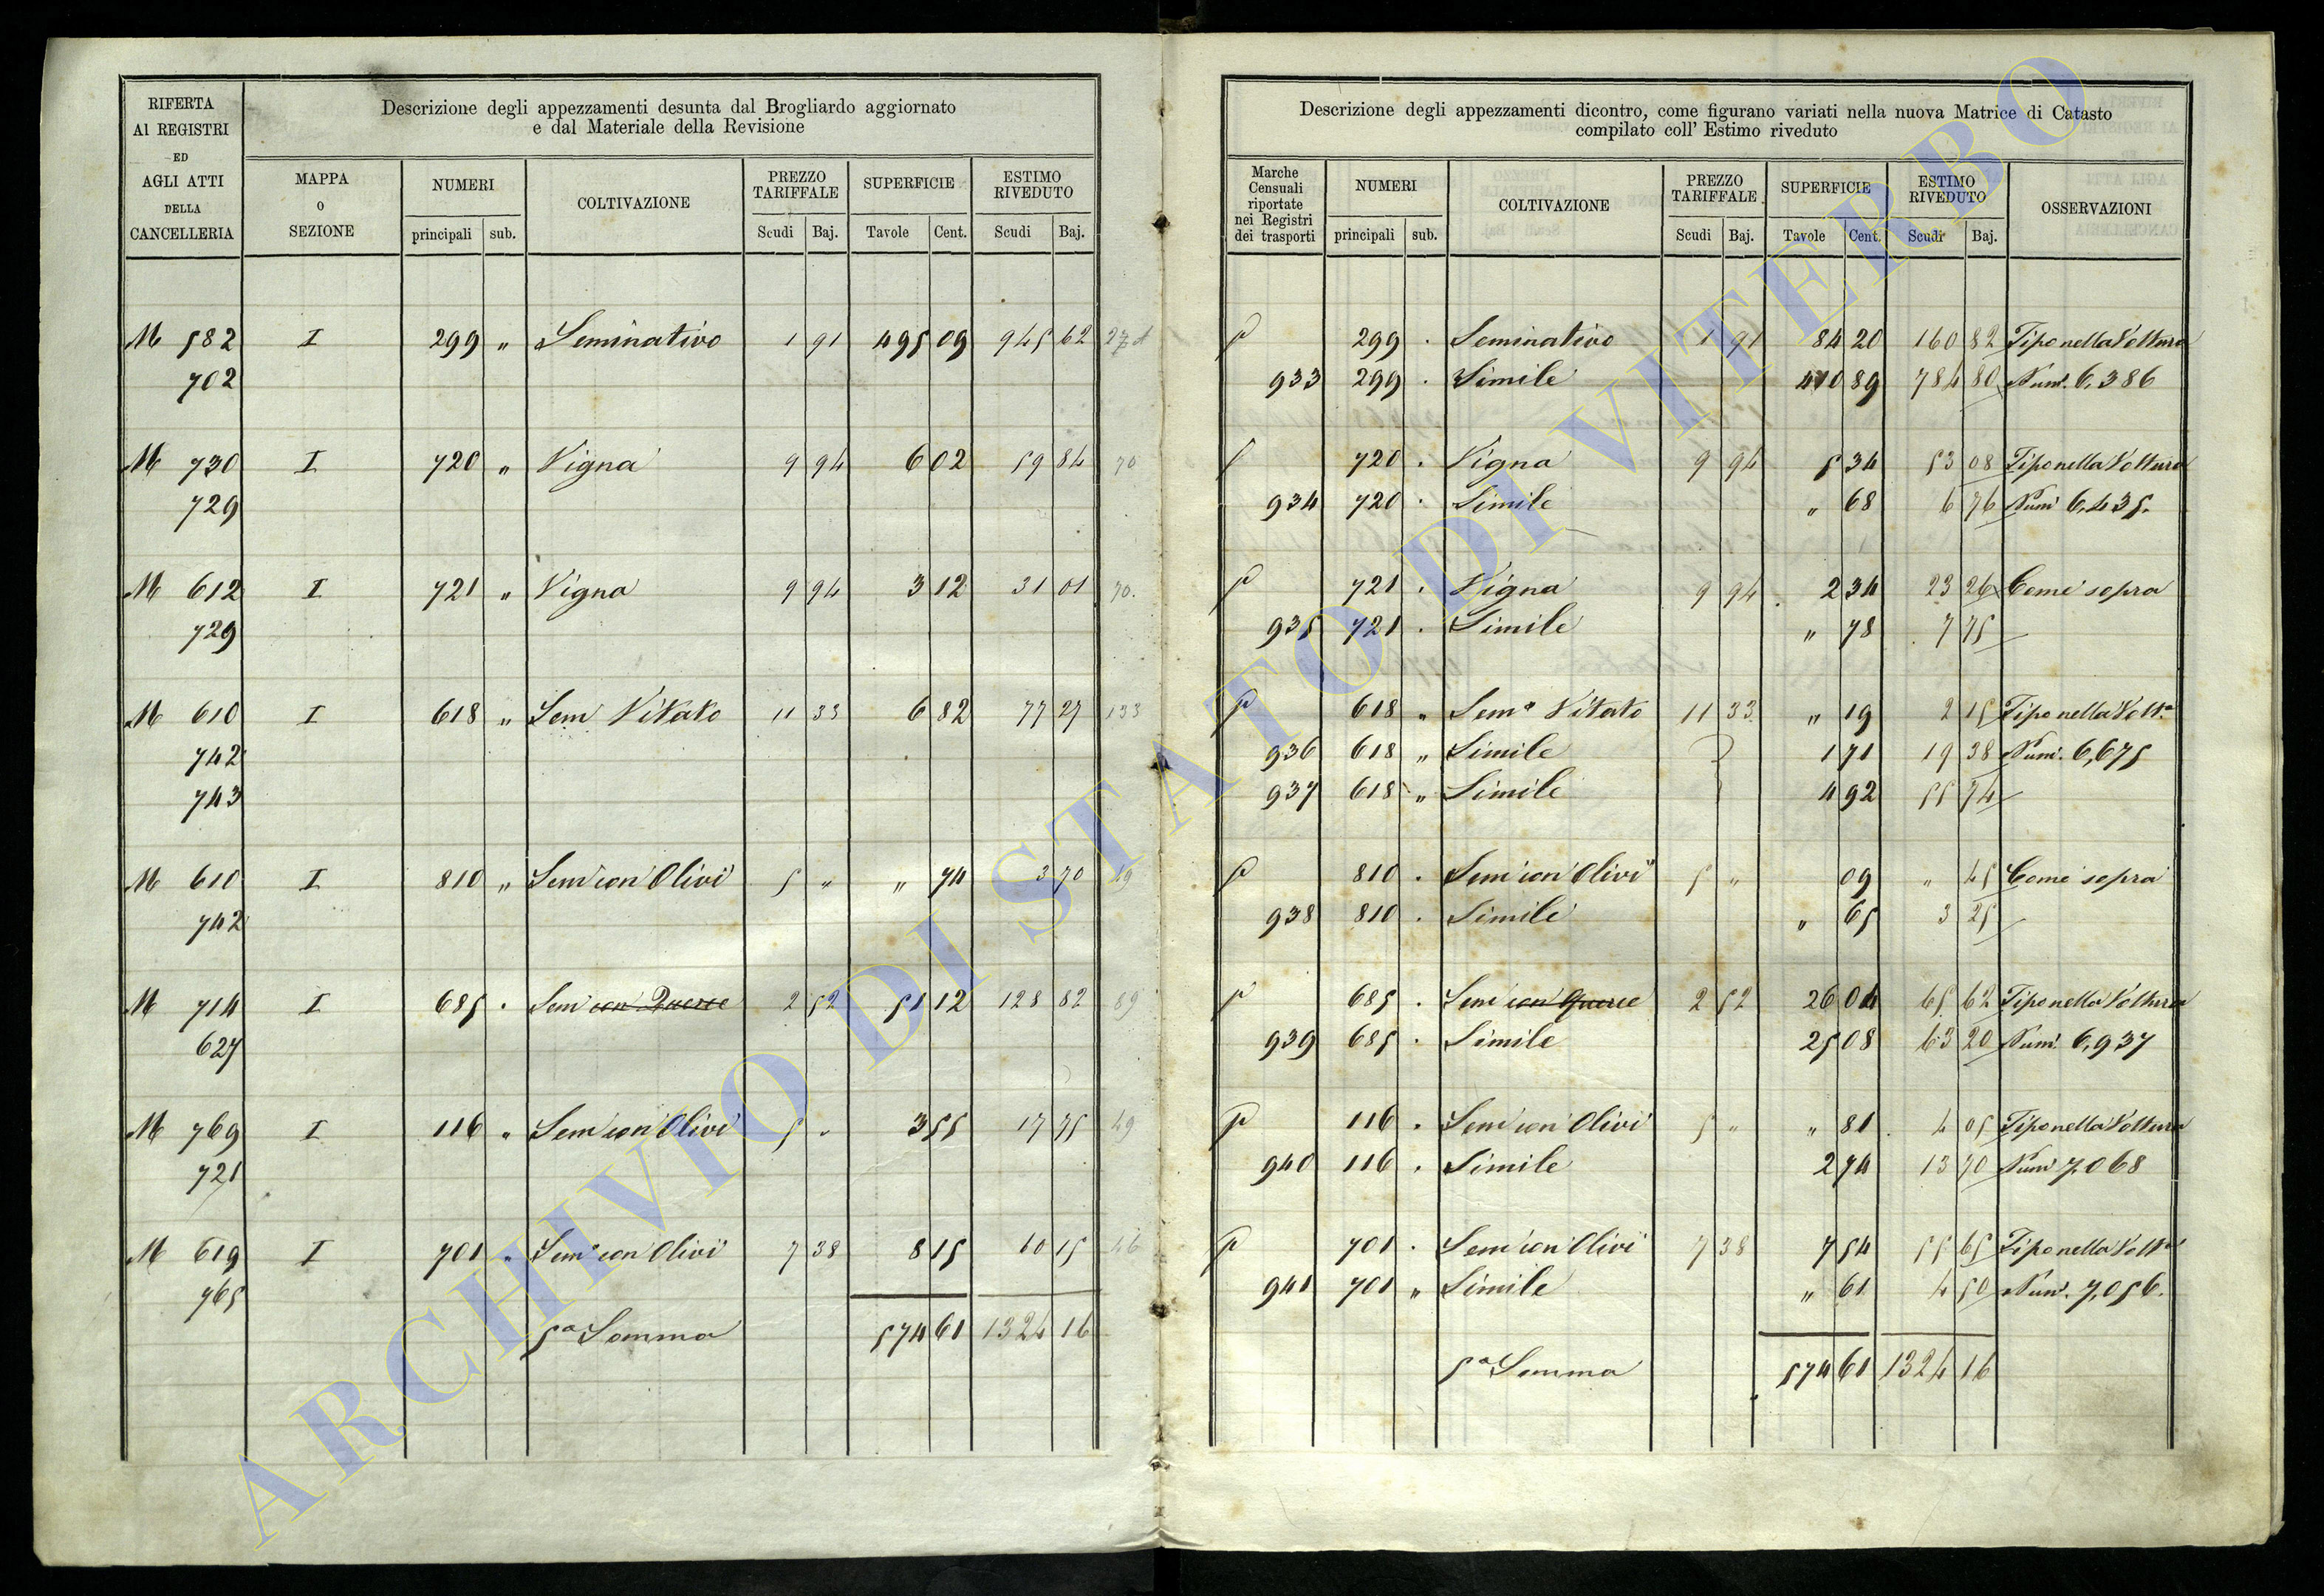 RIFERTA
AI REGISTRI
ED
AGLI ATTI
DELLA
CANCELLERIA
Descrizione degli appezzamenti desunta dal Brogliardo aggiornato
e dal Materiale della Revisione
MAPPA
O
SEZIONE
NUMERI
principali sub.
COLTIVAZIONE
PREZZO
TARIFFALE
Scudi Baj.
SUPERFICIE
Tavole Cent.
ESTIMO
RIVEDUTO
Scudi Baj.
M 582 I 299 " Seminativo 1 91 495 09 945 62
702
M 730 I 720 " Vigna 9 94 6 02 59 84 70
729
M 612 I 721 " Vigna 9 94 3 12 31 01 70.
729
M 610 I 618 " Sem Vitato 11 33 6 82 77 27 133
742
743
M 610 I 810 " Sem con Olivi 5 " " 74 3 70 49
742
M 714 I 685 . Sem con Querce 2 52 51 12 128 82 89
627
M 769 I 116 " Sem con Olivi 5 " 3 55 17 75 49
721
M 619 I 701 " Sem con Olivi 7 38 8 15 60 15 46
765
5a Somma 574 61 1324 16
Descrizione degli appezzamenti dicontro, come figurano variati nella nuova Matrice di Catasto
compilato coll' Estimo riveduto
Marche
Censuali
riportate
nei Registri
dei trasporti
NUMERI
principali sub.
COLTIVAZIONE
PREZZO
TARIFFALE
Scudi Baj.
SUPERFICIE
Tavole Cent.
ESTIMO
RIVEDUTO
Scudi Baj.
OSSERVAZIONI
p 299 . Seminativo 1 91 84 20 160 82 Tipo nella Voltura
933 299 . Simile 410 89 784 80 Num. 6,386
p 720 . Vigna 9 94 5 34 53 08 Tipo nella Voltura
934 720 . Simile " 68 6 76 Num 6,435.
p 721 . Vigna 9 94 2 34 23 26 Come sopra
935 721 . Simile " 78 7 75
p 618 " Sem.o Vitato 11 33 " 19 2 15 Tipo nella Volt.a
936 618 " Simile 1 71 19 38 Num. 6,675
937 618 " Simile 4 92 55 74
p 810 . Sem con Olivi 5 " 09 " 45 Come sopra
938 810 . Simile " 65 3 25
p 685 . Sem con Querce 2 52 26 04 65 62 Tipo nella Voltura
939 685 . Simile 25 08 63 20 Num. 6,937
p 116 . Sem con Olivi 5 " " 81 4 05 Tipo nella Voltura
940 116 . Simile 2 74 13 70 Num 7,068
p 701 . Sem con Olivi 7 38 7 54 55 65 Tipo nella Volt.a
941 701 " Simile " 61 4 50 Num. 7,056.
5a Somma 574 61 1324 16
ARCHIVIO DI STATO DI VITERBO